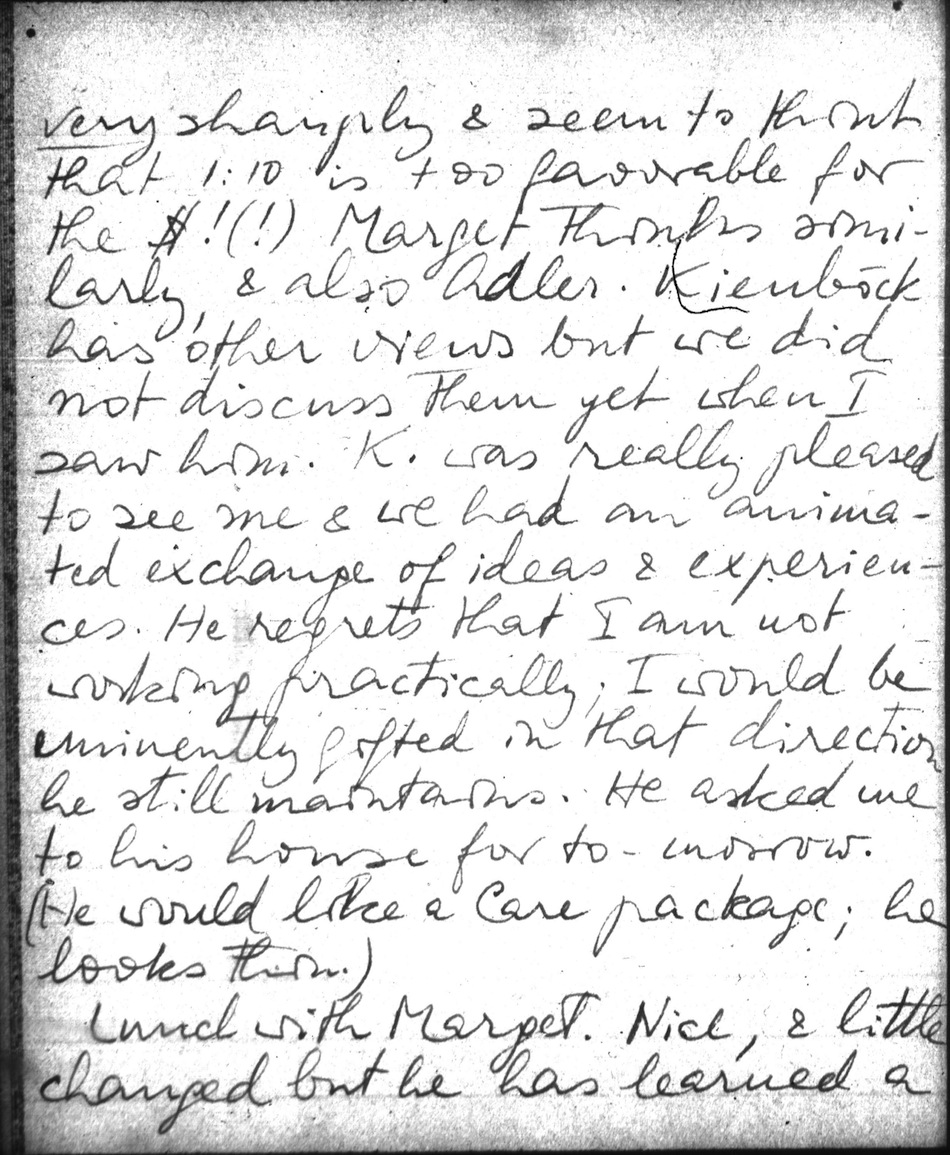 very sharply & seem to think
that 1:10 is too favorable for
the $!(!) Marget thinks simi-
larly, & also Adler. Kienböck
has other views but we did
not discuss them yet when I
saw him. K. was really pleased
to see me & we had an anima-
ted exchange of ideas & experien-
ces. He regrets that I am not
working practically; I would be
eminently gifted in that direction
he still maintains. He asked me
to his house for to-morrow.
(He would like a Care package; he
looks thin.)
Lunch with Marget. Nice, & little
changed but he has learned a